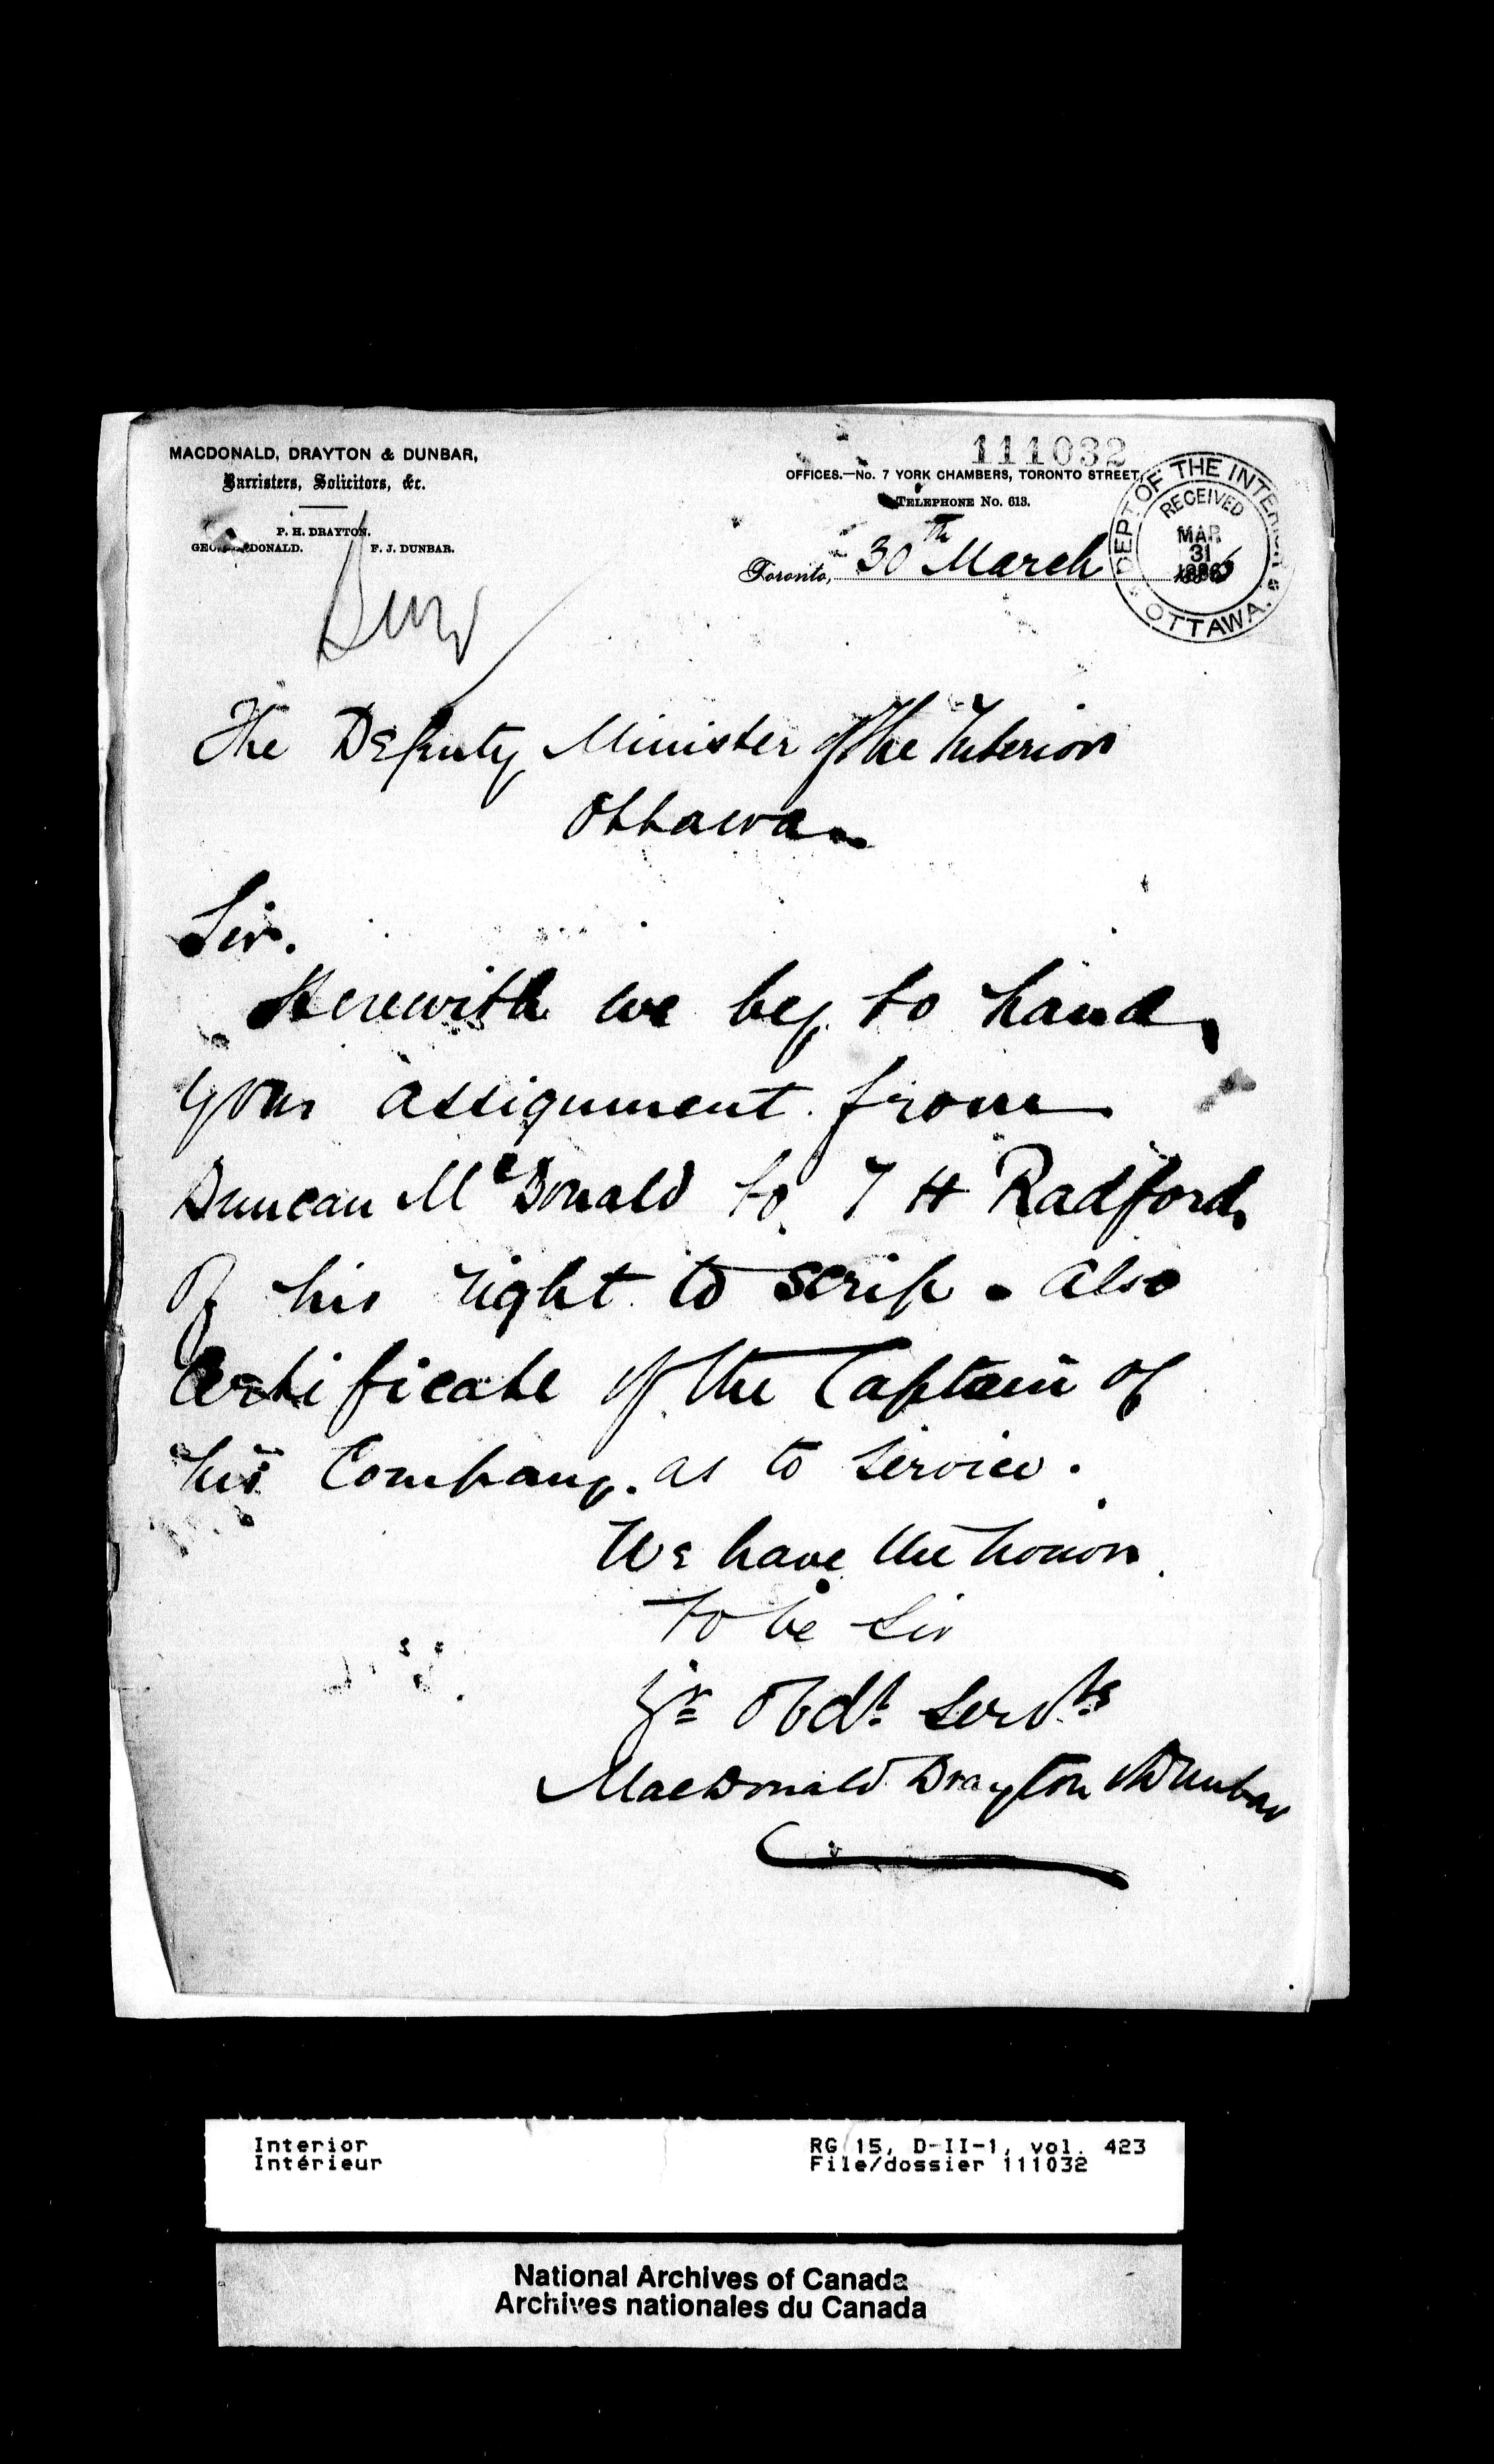 111032
MACDONALD, DRAYTON & DUNBAR,
Barristers, Solicitors, &c.
P. H. DRAYTON.
GEO. MACDONALD. F. J. DUNBAR.
OFFICES.—No. 7 YORK CHAMBERS, TORONTO STREET,
TELEPHONE No. 613.
Toronto, 30th March
DEPT OF THE INTERIOR
RECEIVED
MAR
31
1886
OTTAWA.
The Deputy Minister of the Interior
Ottawa
Sir.
Herewith we beg to hand
you assignment from
Duncan McDonald to T H Radford
of his right to scrip. also
Certificate of the Captain of
his Company. as to service.
We have the honor
to be Sir
Yr Obdt Servts
MacDonald Drayton & Dunbar
Interior
Intérieur
RG 15, D-II-1, vol. 423
File/dossier 111032
National Archives of Canada
Archives nationales du Canada